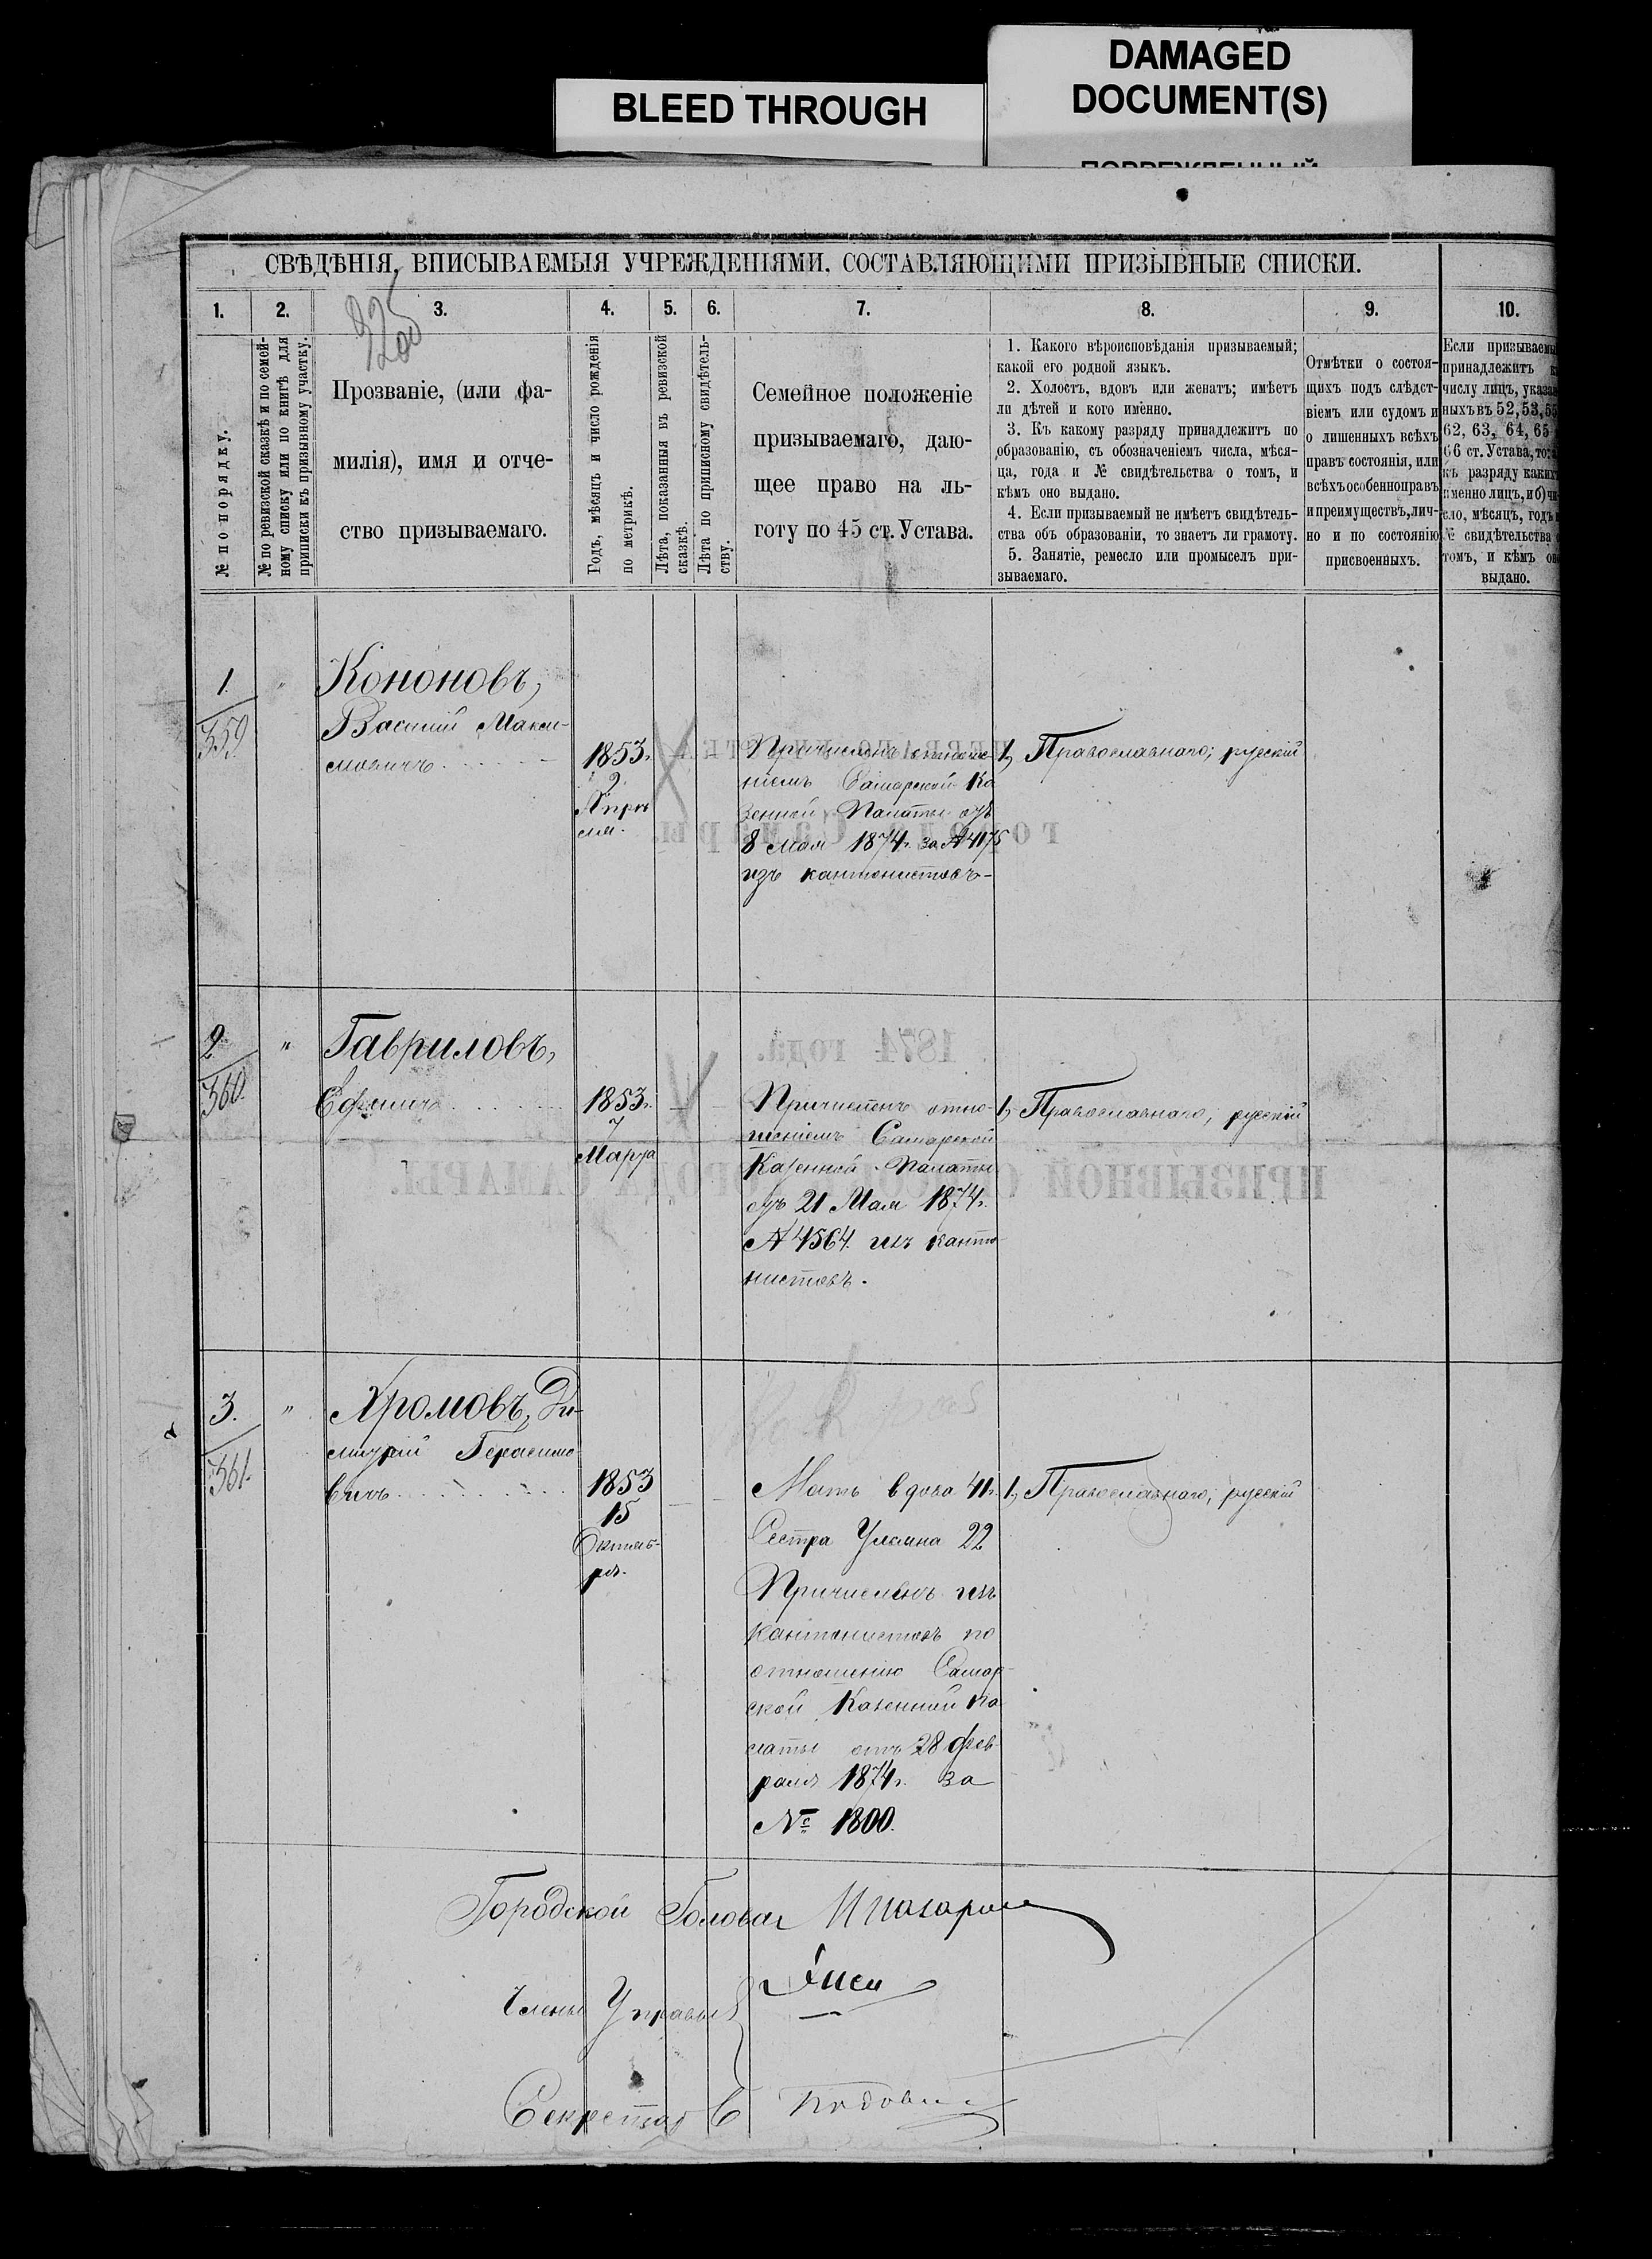 BLEED THROUGH
DAMAGED
DOCUMENT(S)
СВѢДѢНІЯ, ВПИСЫВАЕМЫЯ УЧРЕЖДЕНІЯМИ, СОСТАВЛЯЮЩИМИ ПРИЗЫВНЫЕ СПИСКИ.
1.
2.
3.
4.
5.
6.
7.
8.
9.
10.
№ по порядку.
№ по ревизской сказкѣ и по семей-
ному списку или по книгѣ для
приписки къ призывному участку.
Прозваніе, (или фа-
милія), имя и отче-
ство призываемаго.
Годъ, мѣсяцъ и число рожденія
по метрикѣ.
Лѣта, показанныя въ ревизской
сказкѣ.
Лѣта по приписному свидѣтель-
ству.
Семейное положеніе
призываемаго, даю-
щее право на ль-
готу по 45 ст. Устава.
1. Какого вѣроисповѣданія призываемый;
какой его родной языкъ.
2. Холостъ, вдовъ или женатъ; имѣетъ
ли дѣтей и кого именно.
3. Къ какому разряду принадлежитъ по
образованію, съ обозначеніемъ числа, мѣся-
ца, года и № свидѣтельства о томъ, и
кѣмъ оно выдано.
4. Если призываемый не имѣетъ свидѣтель-
ства объ образованіи, то знаетъ ли грамоту.
5. Занятіе, ремесло или промыселъ при-
зываемаго.
Отмѣтки о состоя-
щихъ подъ слѣдст-
віемъ или судомъ и
о лишенныхъ всѣхъ
правъ состоянія, или
всѣхъ особенно правъ
и преимуществъ, лич-
но и по состоянію
присвоенныхъ.
Если призываемы
принадлежитъ к
числу лицъ, указан
ныхъ въ 52, 53, 55
62, 63, 64, 65
66 ст. Устава, то: а
къ разряду какихъ
именно лицъ, и б) чи-
сло, мѣсяцъ, годъ и
№ свидѣтельства о
томъ, и кѣмъ оно
выдано.
1.
359
"
Кононовъ,
Василій Макси-
мовичъ
1853г.
2
Апрѣ
ля.
Причисленъ отноше-
ніемъ Самарской Ка
зенной Палаты отъ
8 Мая 1874г. за № 4175
изъ кантонистовъ-
1, Православнаго; русскій
2.
360.
"
Гавриловъ,
Ефимъ
1853г.
7
Марта
Причисленъ отно-
шеніемъ Самарской
Казенной Палаты
отъ 21 Мая 1874г.
№ 4564. изъ канто
нистовъ.
1, Православнаго; русскій
3.
361.
"
Хромовъ, Ди-
митрій Герасимо-
вичъ
1853
15
Октяб-
ря.
Мать вдова 41г.
Сестра Ульяна 22
Причисленъ изъ
кантонистовъ по
отношенію Самар-
ской Казенной Па
латы отъ 28 фев-
раля 1874г. за
№ 1800.
1, Православнаго; русскій
Городской Голова
Члены Управы
Секретарь